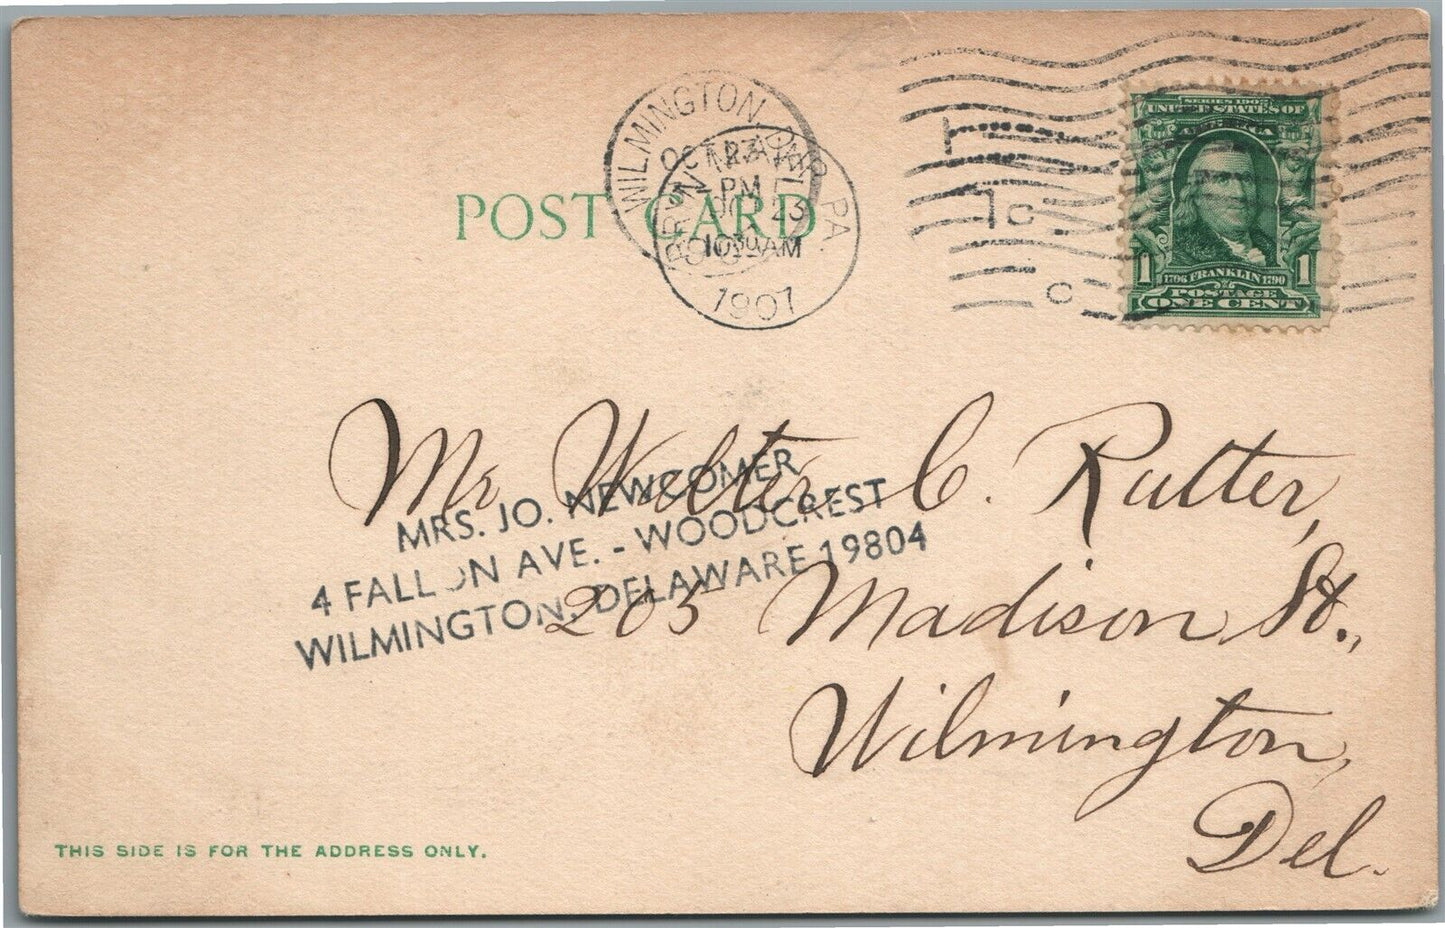 WILMINGTON, DEL.
OCT 23
PM
BRYN MAWR, PA.
OCT 23
10 30 AM
1907
SERIES 1902
UNITED STATES OF
AMERICA
1 1706 FRANKLIN 1790 1
POSTAGE
ONE CENT
POST CARD
Mr. Walter C. Rutter,
203 Madison St.,
Wilmington,
Del.
MRS. JO. NEWCOMER
4 FALLON AVE. - WOODCREST
WILMINGTON, DELAWARE 19804
THIS SIDE IS FOR THE ADDRESS ONLY.